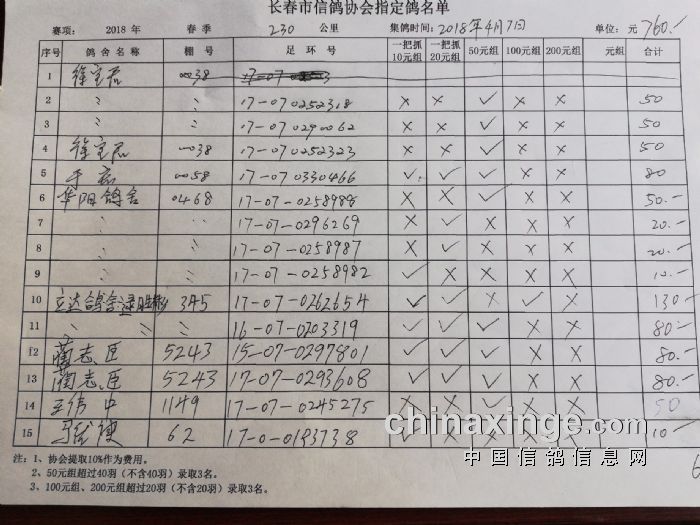 长春市信鸽协会指定鸽名单
赛项: 2018 年 春季 230 公里 集鸽时间: 2018年4月7日 单位: 元 760.-
序号 鸽舍名称 棚号 足环号 一把抓10元组 一把抓20元组 50元组 100元组 200元组 元组 合计
1 徐宝君 0038
2 〃 〃 17-07-0252318 × × ✓ × × 50
3 〃 〃 17-07-0290062 × × ✓ × × 50
4 徐宝君 0038 17-07-0252323 × × ✓ × × 50
5 于 0058 17-07-0330466 ✓ ✓ ✓ × × 80
6 华阳鸽舍 0468 17-07-0258988 × × ✓ × × 50.-
7 〃 〃 17-07-0296269 × ✓ × × × 20.-
8 〃 〃 17-07-0258987 × ✓ × × × 20.-
9 〃 〃 17-07-0258982 ✓ × × × × 10.-
10 立达鸽舍 345 17-07-0262654 ✓ ✓ × ✓ × 130-
11 〃 〃 16-07-0203319 ✓ ✓ ✓ × × 80-
12 蔺志臣 5243 15-07-0297801 ✓ ✓ ✓ × × 80.-
13 蔺志臣 5243 17-07-0293608 ✓ ✓ ✓ × × 80.-
14 王伟中 1149 17-07-0245275 × × ✓ × × 50
15 62 17-0-0193738 ✓ × × × × 10-
注: 1、协会提取10%作为费用。
2、50元组超过40羽（不含40羽）录取3名。
3、100元组、200元组超过20羽（不含20羽）录取3名。
chinaxinge.com
中国信鸽信息网